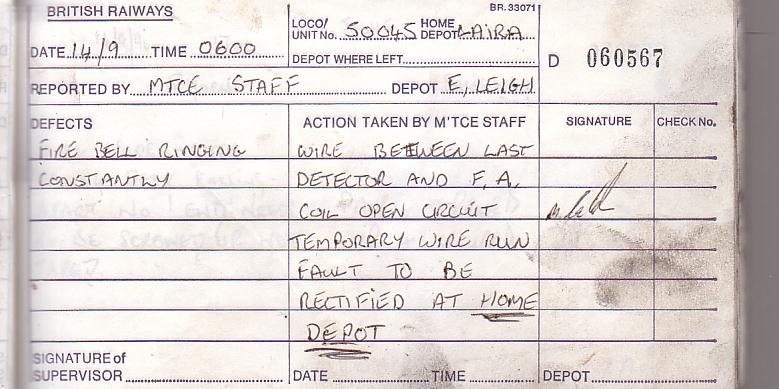 BRITISH RAILWAYS
BR. 33071
DATE 14/9 TIME 0600
LOCO/ UNIT No. 50045 HOME DEPOT LAIRA
DEPOT WHERE LEFT
D 060567
REPORTED BY MTCE STAFF DEPOT E, LEIGH
DEFECTS
ACTION TAKEN BY M'TCE STAFF
SIGNATURE
CHECK No.
FIRE BELL RINGING
CONSTANTLY
WIRE BETWEEN LAST
DETECTOR AND F.A.
COIL OPEN CIRCUIT
TEMPORARY WIRE RUN
FAULT TO BE
RECTIFIED AT HOME
DEPOT
SIGNATURE of
SUPERVISOR
DATE TIME DEPOT